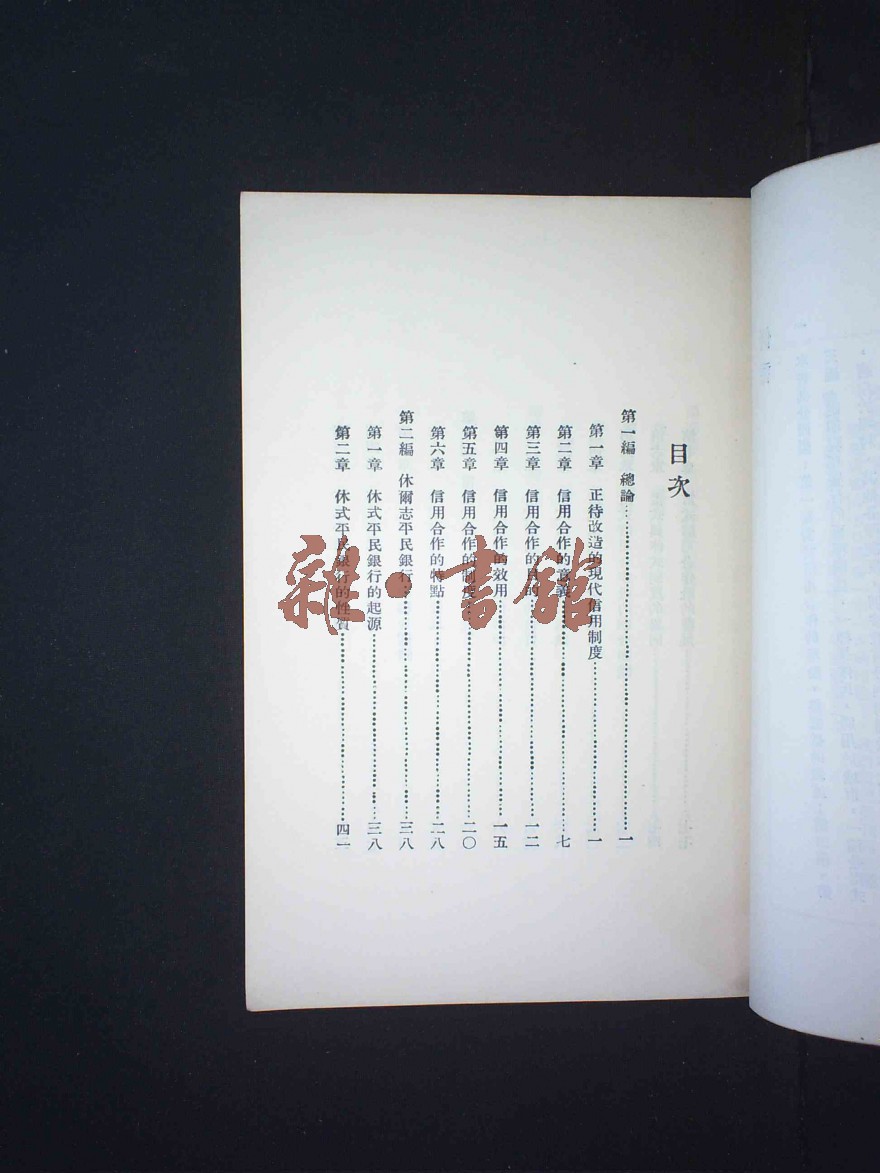 目次
第一編　總論……………………一
第一章　正待改造的現代信用制度……………………一
第二章　信用合作的意義……………………七
第三章　信用合作的目的……………………一二
第四章　信用合作的效用……………………一五
第五章　信用合作的制度……………………二〇
第六章　信用合作的特點……………………二八
第二編　休爾志平民銀行……………………三八
第一章　休式平民銀行的起源……………………三八
第二章　休式平民銀行的性質……………………四二
雜·書館